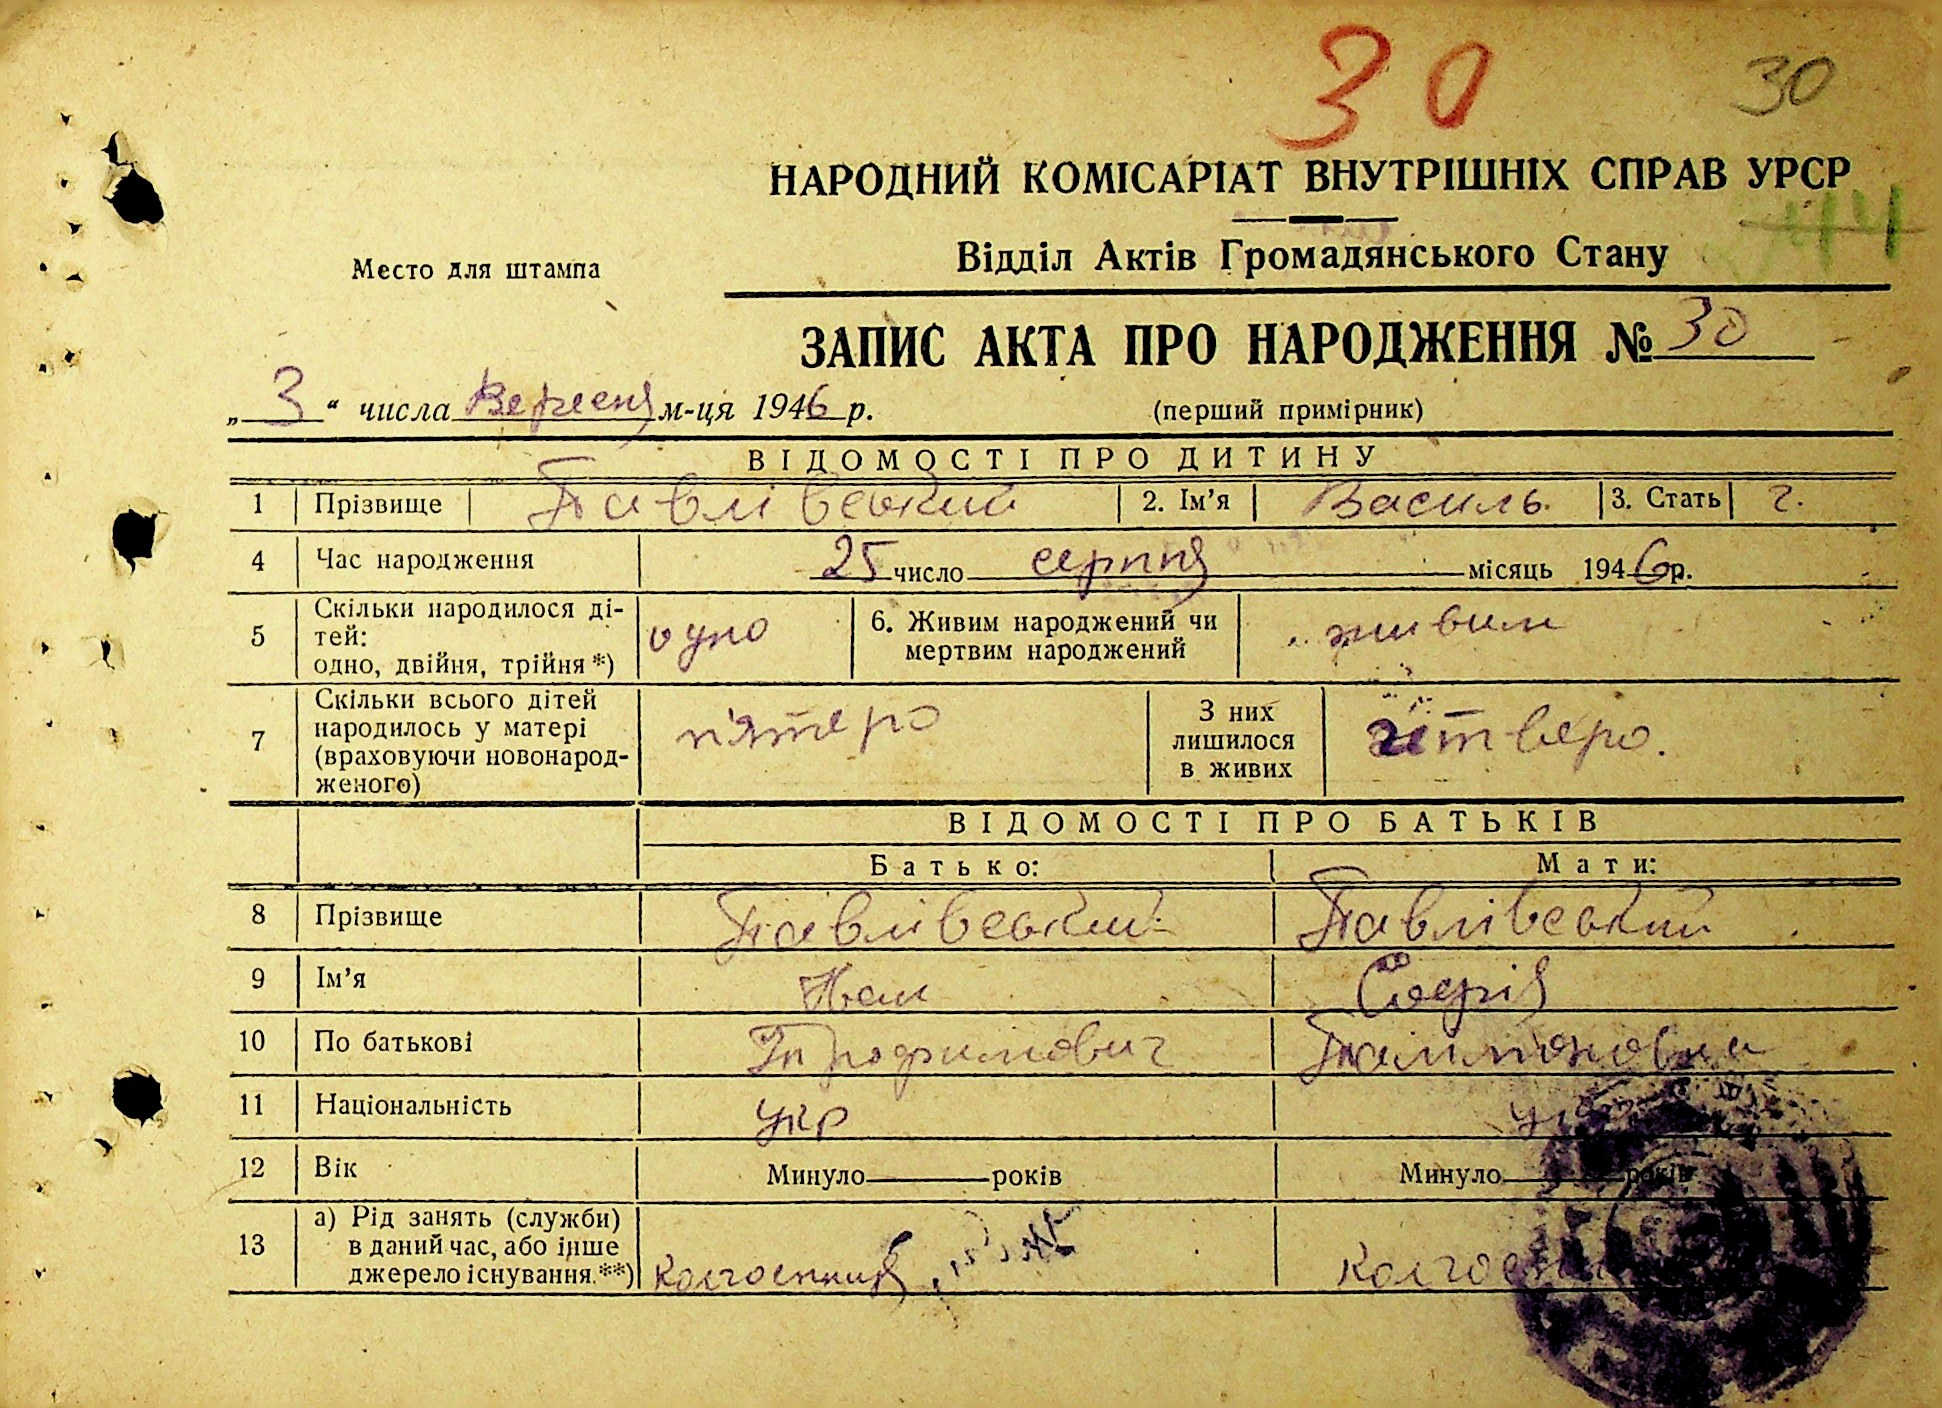 30 30
НАРОДНИЙ КОМІСАРІАТ ВНУТРІШНІХ СПРАВ УРСР
44
Место для штампа
Відділ Актів Громадянського Стану
ЗАПИС АКТА ПРО НАРОДЖЕННЯ № 30
„ 3 “ числа Вересня м-ця 1946 р. (перший примірник)
ВІДОМОСТІ ПРО ДИТИНУ
1 Прізвище Павлівський 2. Ім’я Василь. 3. Стать ч.
4 Час народження 25 число серпня місяць 1946 р.
5 Скільки народилося ді-
тей:
одно, двійня, трійня*) одно 6. Живим народжений чи
мертвим народжений живим
7 Скільки всього дітей
народилось у матері
(враховуючи новонарод-
женого) п'ятеро З них
лишилося
в живих четверо.
ВІДОМОСТІ ПРО БАТЬКІВ
Батько: Мати:
8 Прізвище Павлівський Павлівський
9 Ім’я Софія
10 По батькові Трофимович
11 Національність укр
12 Вік Минуло років Минуло років
13 а) Рід занять (служби)
в даний час, або інше
джерело існування.**) колгоспник